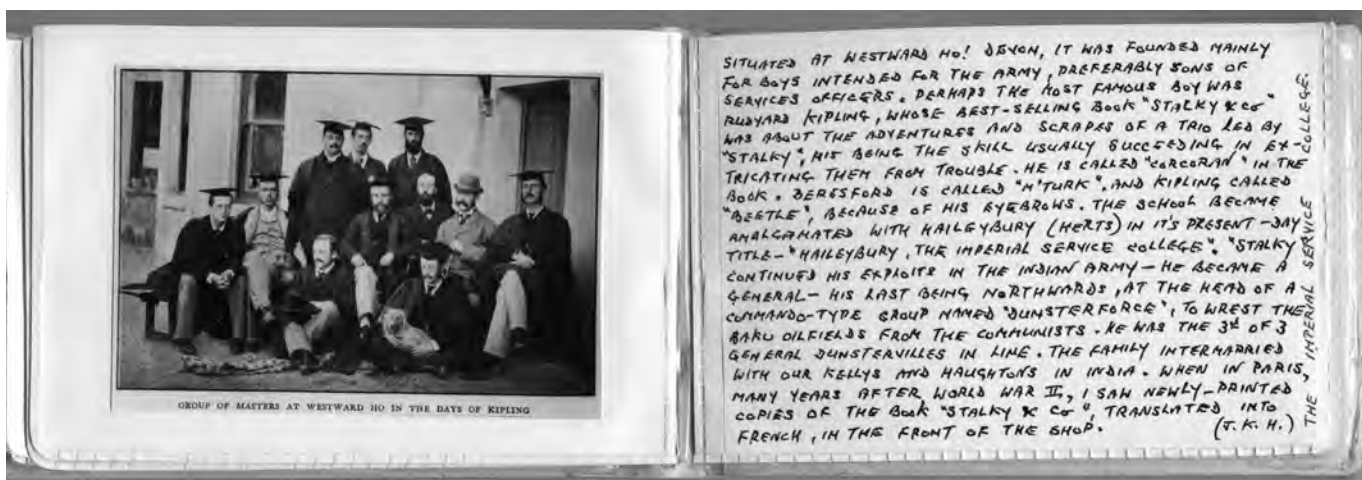 GROUP OF MASTERS AT WESTWARD HO IN THE DAYS OF KIPLING
SITUATED AT WESTWARD HO! DEVON, IT WAS FOUNDED MAINLY
FOR BOYS INTENDED FOR THE ARMY, PREFERABLY SONS OF
SERVICES OFFICERS. PERHAPS THE MOST FAMOUS BOY WAS
RUDYARD KIPLING, WHOSE BEST-SELLING BOOK "STALKY & Co"
WAS ABOUT THE ADVENTURES AND SCRAPES OF A TRIO LED BY
"STALKY", HIS BEING THE SKILL USUALLY SUCCEEDING IN EX-
TRICATING THEM FROM TROUBLE. HE IS CALLED "CORCORAN" IN THE
BOOK. BERESFORD IS CALLED "M'TURK", AND KIPLING CALLED
"BEETLE", BECAUSE OF HIS EYEBROWS. THE SCHOOL BECAME
AMALGAMATED WITH HAILEYBURY (HERTS) IN IT'S PRESENT-DAY
TITLE-"HAILEYBURY, THE IMPERIAL SERVICE COLLEGE". "STALKY"
CONTINUED HIS EXPLOITS IN THE INDIAN ARMY- HE BECAME A
GENERAL- HIS LAST BEING NORTHWARDS, AT THE HEAD OF A
COMMANDO-TYPE GROUP NAMED "DUNSTERFORCE", TO WREST THE
BAKU OILFIELDS FROM THE COMMUNISTS. HE WAS THE 3rd OF 3
GENERAL DUNSTERVILLES IN LINE. THE FAMILY INTERMARRIED
WITH OUR KELLYS AND HAUGHTONS IN INDIA. WHEN IN PARIS,
MANY YEARS AFTER WORLD WAR II, I SAW NEWLY-PRINTED
COPIES OF THE BOOK "STALKY & Co", TRANSLATED INTO
FRENCH, IN THE FRONT OF THE SHOP. (J.K.H.)
THE IMPERIAL SERVICE COLLEGE.